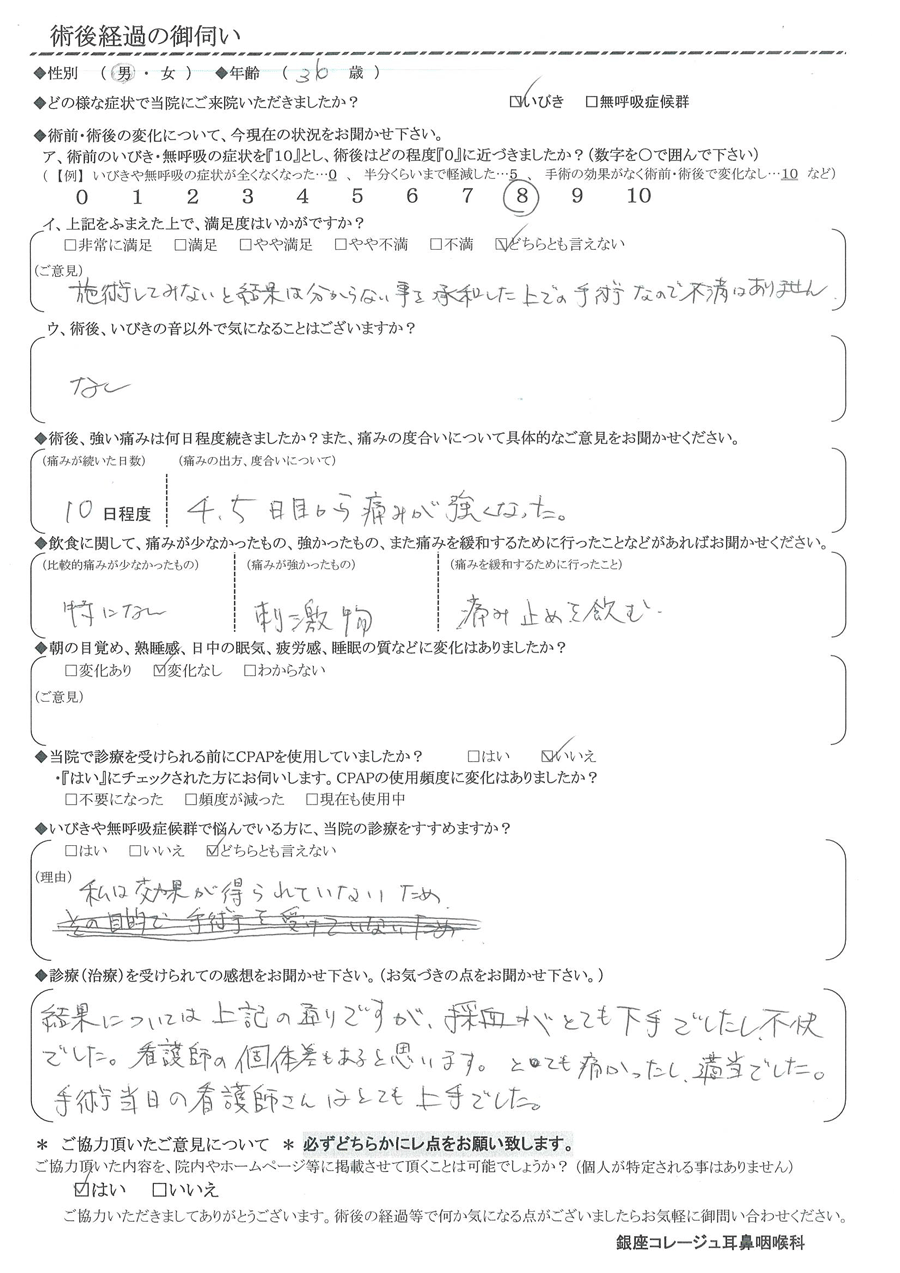 術後経過の御伺い
◆性別 ( 男 ・ 女 ) ◆年齢 ( 36 歳 )
◆どの様な症状で当院にご来院いただきましたか? ☑いびき □無呼吸症候群
◆術前・術後の変化について、今現在の状況をお聞かせ下さい。
ア、術前のいびき・無呼吸の症状を『10』とし、術後はどの程度『0』に近づきましたか?(数字を〇で囲んで下さい)
(【例】いびきや無呼吸の症状が全くなくなった…0 、 半分くらいまで軽減した…5 、 手術の効果がなく術前・術後で変化なし…10 など)
0 1 2 3 4 5 6 7 8 9 10
イ、上記をふまえた上で、満足度はいかがですか?
□非常に満足 □満足 □やや満足 □やや不満 □不満 ☑どちらとも言えない
(ご意見)
施術してみないと結果は分からない事を承和した上での手術なので不満はありません
ウ、術後、いびきの音以外で気になることはございますか?
なし
◆術後、強い痛みは何日程度続きましたか?また、痛みの度合いについて具体的なご意見をお聞かせください。
(痛みが続いた日数) (痛みの出方、度合いについて)
10 日程度 4、5日目から痛みが強くなった。
◆飲食に関して、痛みが少なかったもの、強かったもの、また痛みを緩和するために行ったことなどがあればお聞かせください。
(比較的痛みが少なかったもの) (痛みが強かったもの) (痛みを緩和するために行ったこと)
特になし 刺激物 痛み止めを飲む。
◆朝の目覚め、熟睡感、日中の眠気、疲労感、睡眠の質などに変化はありましたか?
□変化あり ☑変化なし □わからない
(ご意見)
◆当院で診療を受けられる前にCPAPを使用していましたか? □はい ☑いいえ
・『はい』にチェックされた方にお伺いします。CPAPの使用頻度に変化はありましたか?
□不要になった □頻度が減った □現在も使用中
◆いびきや無呼吸症候群で悩んでいる方に、当院の診療をすすめますか?
□はい □いいえ ☑どちらとも言えない
(理由)
私は効果が得られていないため
その目的で手術を受けていないため
◆診療(治療)を受けられての感想をお聞かせ下さい。(お気づきの点をお聞かせ下さい。)
結果については上記の通りですが、採血がとても下手でしたし、不快
でした。看護師の個体差もあると思います。とても痛かったし、適当でした。
手術当日の看護師さんはとても上手でした。
* ご協力頂いたご意見について * 必ずどちらかにレ点をお願い致します。
ご協力頂いた内容を、院内やホームページ等に掲載させて頂くことは可能でしょうか?(個人が特定される事はありません)
☑はい □いいえ
ご協力いただきましてありがとうございます。術後の経過等で何か気になる点がございましたらお気軽に御問い合わせください。
銀座コレージュ耳鼻咽喉科